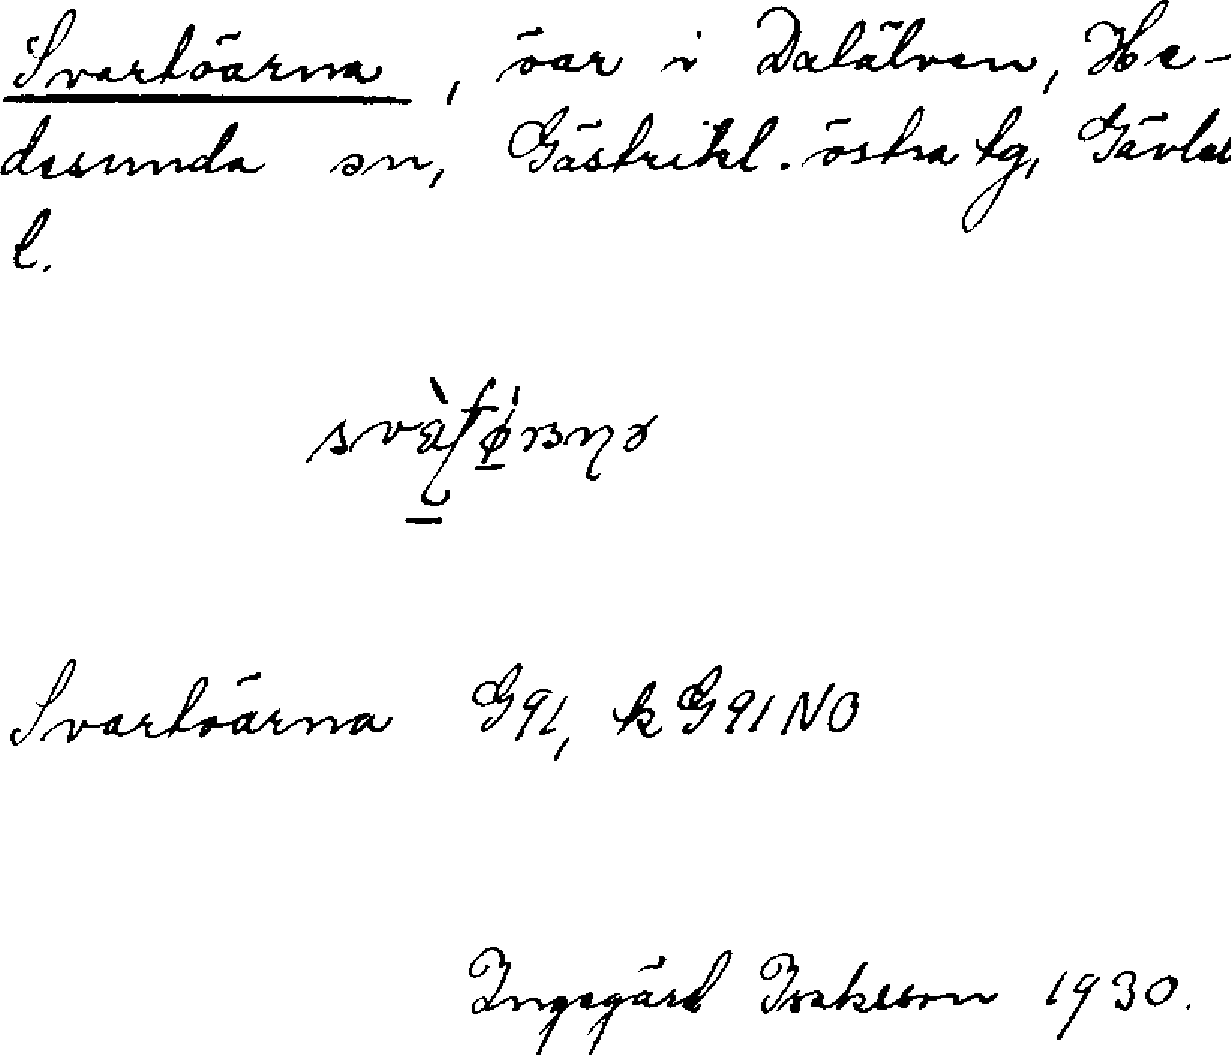 Svartöarna, öar i Dalälven, He-
desunda sn, Gästrikl. östra tg, Gävleb
l.
Svartöarna G91, k G91NO
Ingegärd Isaksson 1930.